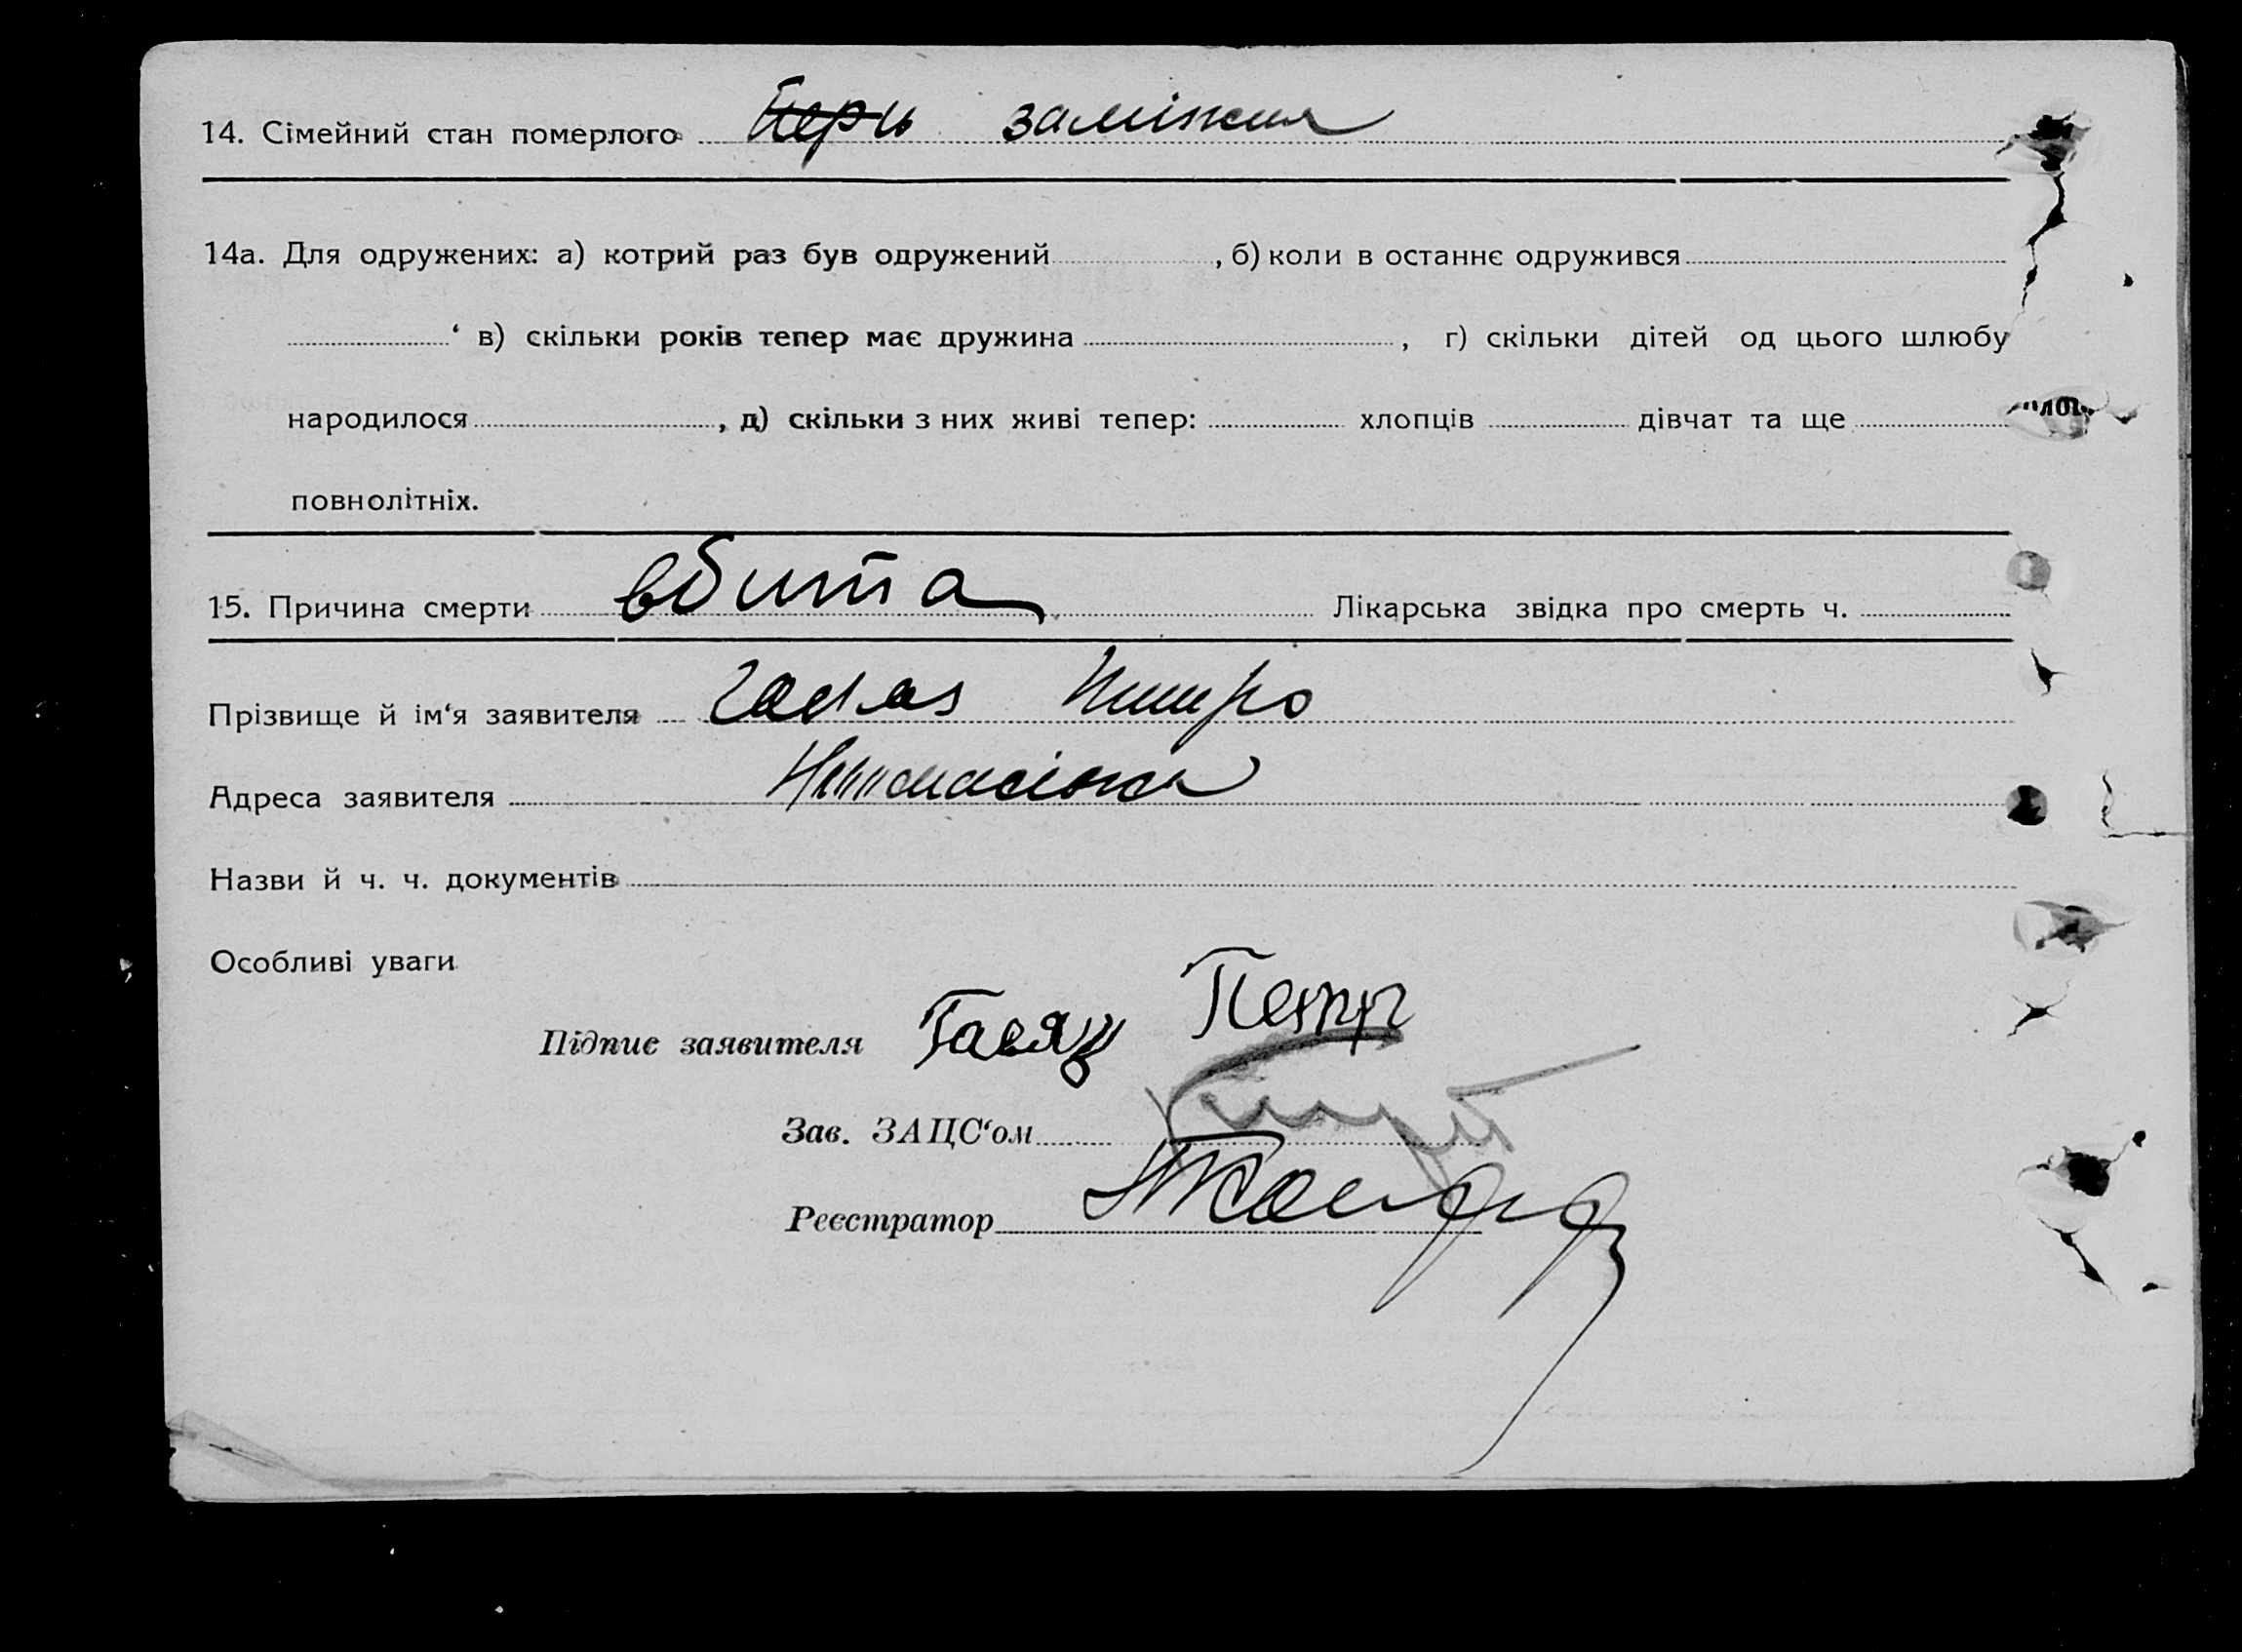 14. Сімейний стан померлого заміжня
14а. Для одружених: а) котрий раз був одружений , б) коли в останнє одружився
‘ в) скільки років тепер має дружина , г) скільки дітей од цього шлюбу
народилося , д) скільки з них живі тепер: хлопців дівчат та ще
повнолітніх.
15. Причина смерти вбита Лікарська звідка про смерть ч.
Прізвище й ім‘я заявителя
Адреса заявителя
Назви й ч. ч. документів
Особливі уваги
Підпис заявителя Петро
Зав. ЗАЦС‘ом
Реєстратор